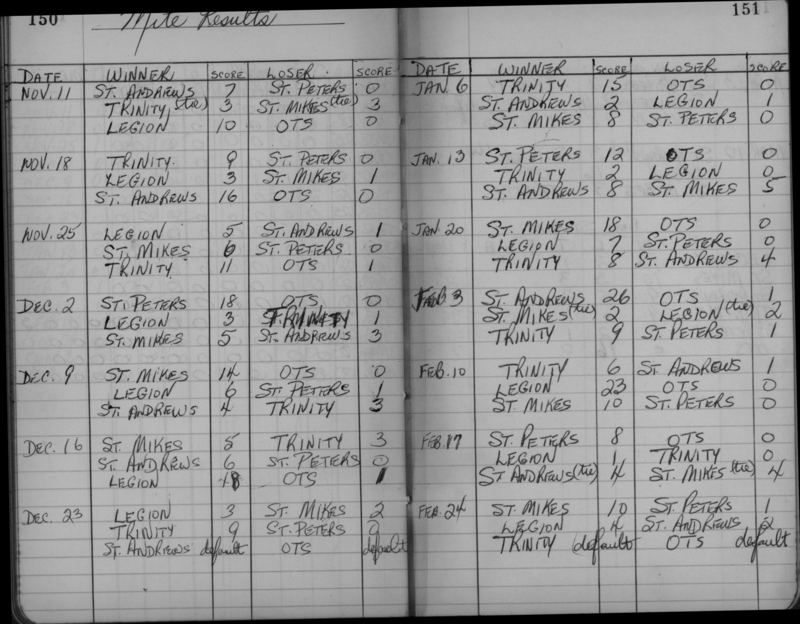 150
Mite Results
DATE WINNER SCORE LOSER SCORE
NOV. 11 ST. ANDREWS 7 ST. PETERS 0
TRINITY (tie) 3 ST. MIKES (tie) 3
LEGION 10 OTS 0
NOV. 18 TRINITY. 9 ST. PETERS 0
LEGION 3 ST. MIKES 1
ST. ANDREWS 16 OTS 0
NOV. 25 LEGION 5 ST. ANDREWS 1
ST. MIKES 6 ST. PETERS 0
TRINITY 11 OTS 1
DEC. 2 ST. PETERS 18 OTS 0
LEGION 3 TRINITY 1
ST. MIKES 5 ST. ANDREWS 3
DEC. 9 ST. MIKES 14 OTS 0
LEGION 6 ST. PETERS 1
ST. ANDREWS 4 TRINITY 3
DEC. 16 ST. MIKES 5 TRINITY 3
ST. ANDREWS 6 ST. PETERS 0
LEGION 8 OTS 1
DEC. 23 LEGION 3 ST. MIKES 2
TRINITY 9 ST. PETERS 0
ST. ANDREWS default OTS default
151
DATE WINNER SCORE LOSER SCORE
JAN. 6 TRINITY 15 OTS 0
ST. ANDREWS 2 LEGION 1
ST. MIKES 8 ST. PETERS 0
JAN. 13 ST. PETERS 12 OTS 0
TRINITY 2 LEGION 0
ST. ANDREWS 8 ST. MIKES 5
JAN. 20 ST. MIKES 18 OTS 0
LEGION 7 ST. PETERS 0
TRINITY 8 ST. ANDREWS 4
FEB 3 ST. ANDREWS 26 OTS 1
ST. MIKES (tie) 2 LEGION (tie) 2
TRINITY 9 ST. PETERS 1
FEB. 10 TRINITY 6 ST ANDREWS 1
LEGION 23 OTS 0
ST. MIKES 10 ST. PETERS 0
FEB. 17 ST. PETERS 8 OTS 0
LEGION 1 TRINITY 0
ST ANDREWS (tie) 4 ST. MIKES (tie) 4
FEB. 24 ST. MIKES 10 ST. PETERS 1
LEGION 4 ST. ANDREWS 2
TRINITY default OTS default